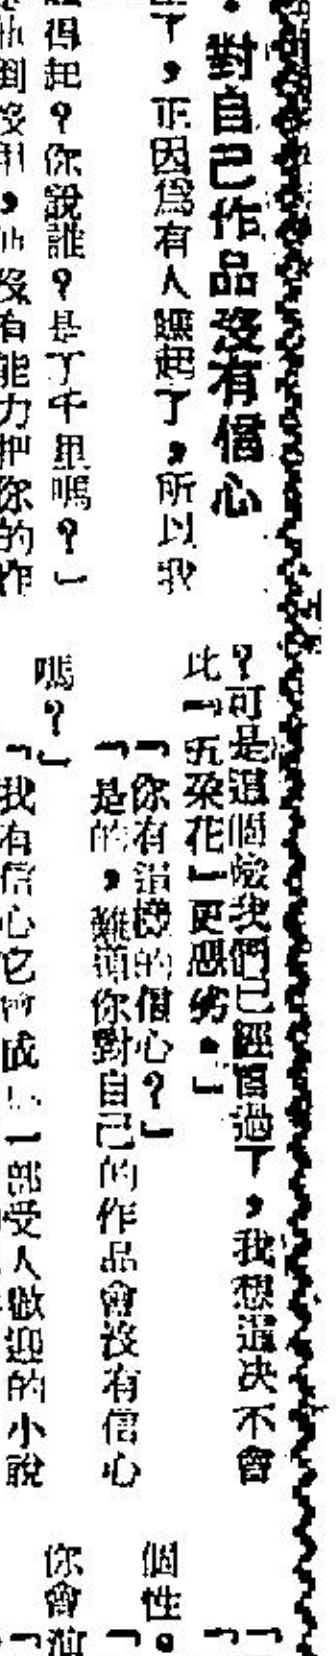 對自己作品沒有信心
了，正因爲有人瞧起了，所以我
得起？你說誰？是丁千里嗎？」
沒有能力把你的作
？可是這個險我們已經冒過了，我想這決不會
此「五朶花」更惡劣。」
「你有這樣的信心？」
「是的，難道你對自己的作品會沒有信心
嗎？」
「我有信心它會成 一部受人歡迎的小說
個性。
你會演